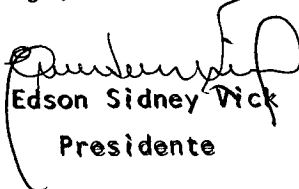 Edson Sidney Vick
Presidente